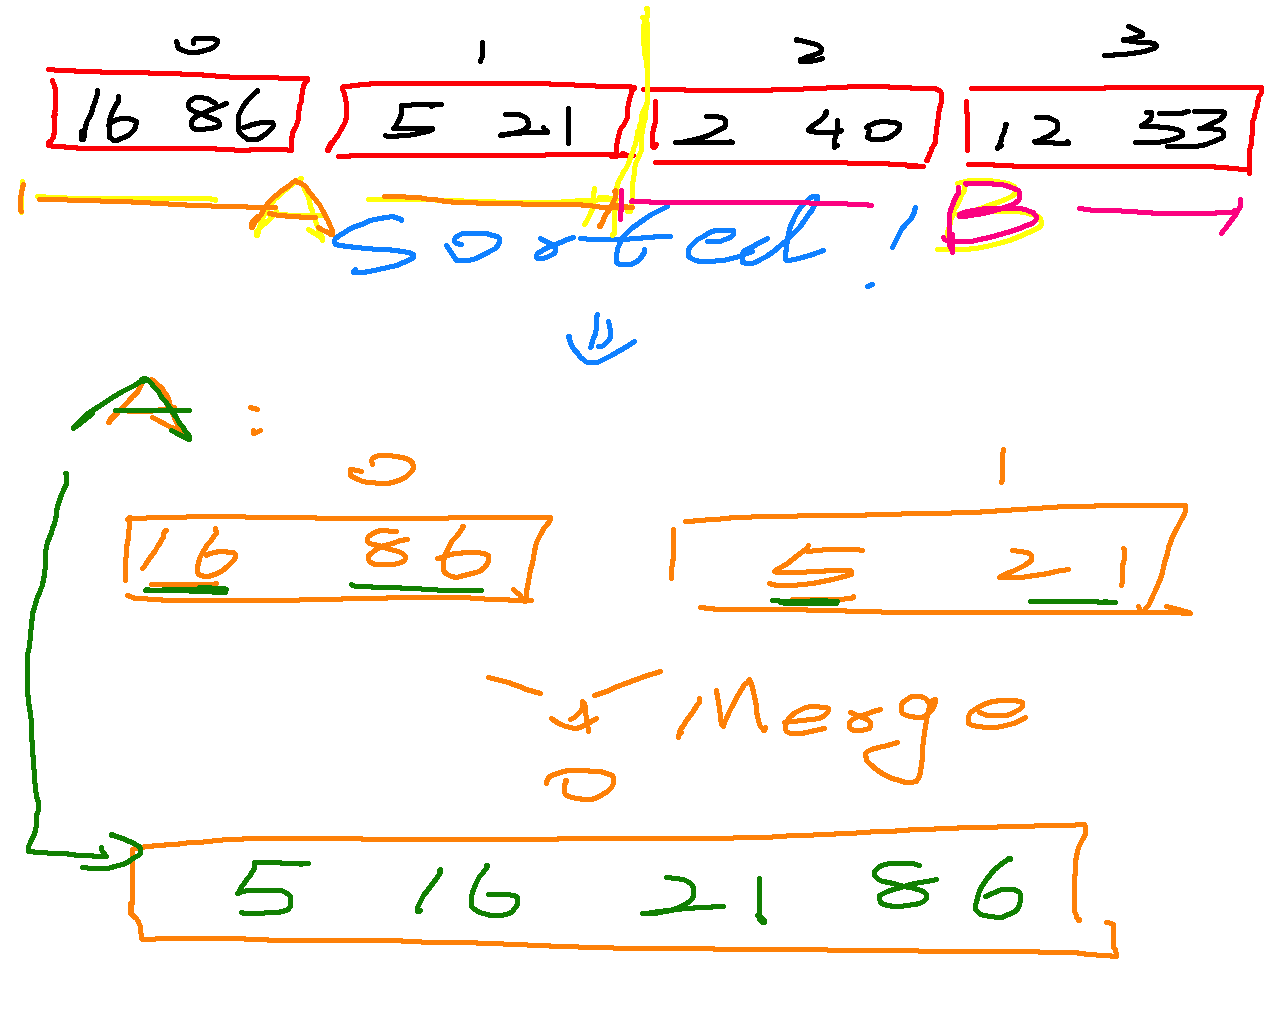 0 1 2 3
16 86 5 21 2 40 12 53
A Sorted! B
A :
0 1
16 86 5 21
Merge
0
5 16 21 86